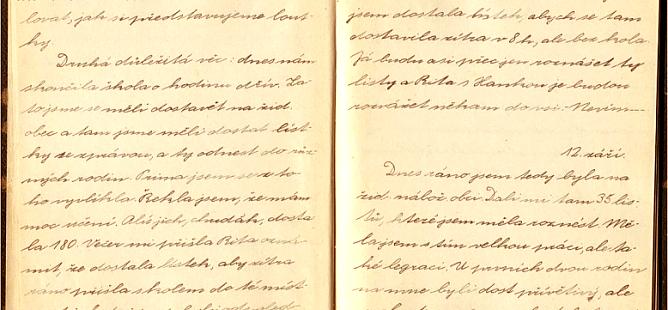 lovat, jak si představujeme lout-
ky.
Druhá důležitá věc: dnes nám
skončila škola o hodinu dřív. Za
to jsme se měli dostavět na žid.
obec a tam jsme měli dostat líst-
ky se zprávou, a ty odnest do růz-
ných rodin. Prima jsem se z to
ho vyvlíkla. Řekla jsem, že mám
moc učení. Ališ jich, chudák, dosta
la 180. Večer mi přišla Rita ozná-
mit, že dostala lístek, aby zítra
ráno přišla s kolem do té míst-
jsem dostala lístek, abych se tam
dostavila zítra v 8 h, ale bez kola.
Já budu asi přec jen roznášet ty
listy a Rita s Hankou je budou
rozvážet někam do vsi. Nevím
12. září.
Dnes ráno jsem tedy byla na
žid. nábož. obci. Dali mi tam 35 lis-
tů, které jsem měla roznést. Mě-
la jsem s tím velkou práci, ale ta-
ké legraci. V prvních dvou rodin
na mne byli dost přívětiví, ale